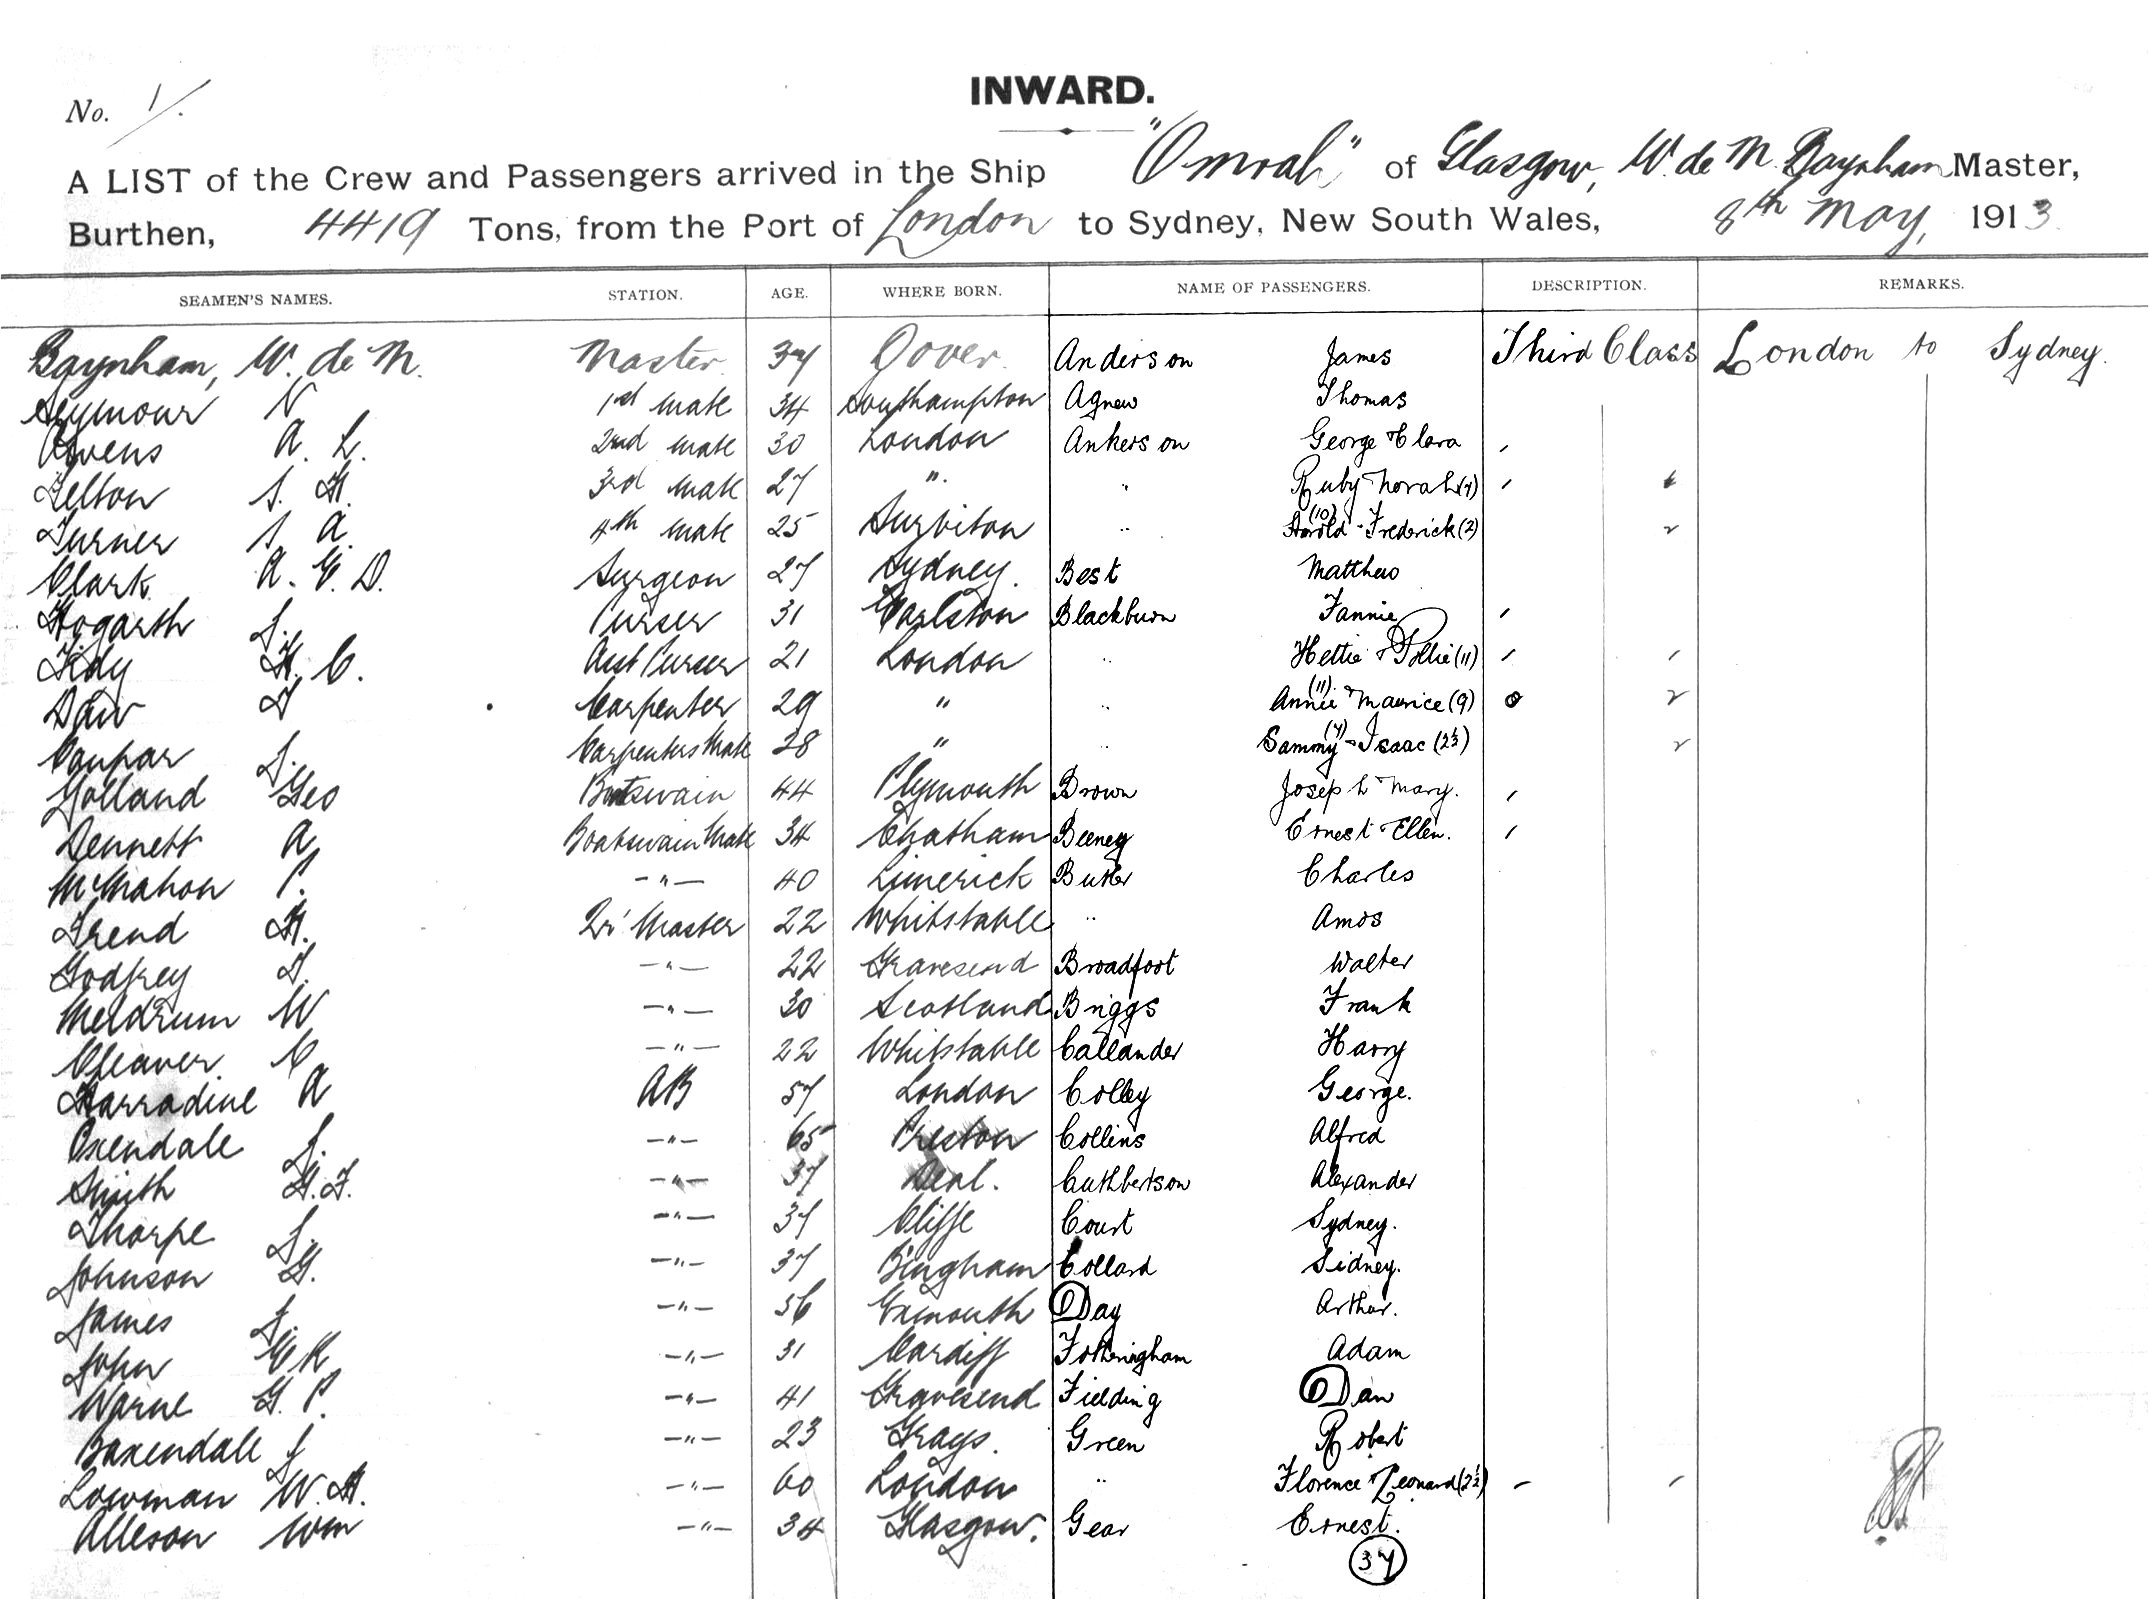 No. 1/.
INWARD.
A LIST of the Crew and Passengers arrived in the Ship "Omrah" of Glasgow, W. de M. Baynham Master,
Burthen, 4419 Tons, from the Port of London to Sydney, New South Wales, 8th May, 1913
SEAMEN'S NAMES. STATION. AGE. WHERE BORN. NAME OF PASSENGERS. DESCRIPTION. REMARKS.
Baynham, W. de M. Master 37 Dover. Anderson James Third Class London to Sydney.
Seymour N 1st Mate 34 Southampton Agnew Thomas
Owens A. L. 2nd Mate 30 London Ankerson George & Clara
Felton S. H. 3rd Mate 27 " " Ruby Norah (7)
Turner S. A. 4th Mate 25 Surbiton " Harold (10) - Frederick (2)
Clark A. E. D. Surgeon 27 Sydney. Best Matthew
Hogarth J. Purser 31 Carlston Blackburn Fannie
Tidy H. C. Asst Purser 21 London " Hettie & Pollie (11)
Daw T Carpenter 29 " " Annie (11) & Maurice (9)
Coupar J. Carpenters Mate 28 " " Sammy (4) - Isaac (2½)
Yolland Geo Boatswain 44 Plymouth Brown Joseph & Mary.
Dennett A Boatswain Mate 34 Chatham Beeney Ernest & Ellen.
McMahon P. -"- 40 Limerick Butler Charles
Frend H. Qr Master 22 Whitstable " Amos
Godfrey T. -"- 22 Gravesend Broadfoot Walter
Meldrum W -"- 30 Scotland Briggs Frank
Cleaver C -"- 22 Whitstable Callander Harry
Harradine A AB 57 London Colley George.
Oxendale J. -"- 65 Preston Collins Alfred
Smith H. F. -"- 37 Deal. Cuthbertson Alexander
Thorpe J. -"- 37 Cliffe Court Sydney.
Johnson G. -"- 37 Bingham Collard Sidney.
James J. -"- 56 Exmouth Day Arthur.
John E R -"- 31 Cardiff Fotheringham Adam
Warne G. P. -"- 41 Gravesend Fielding Dan
Baxendale J -"- 23 Grays. Green Robert
Lowman W. H. -"- 60 London " Florence & Leonard (2½)
Alleson Wm -"- 34 Glasgow. Gear Ernest.
37